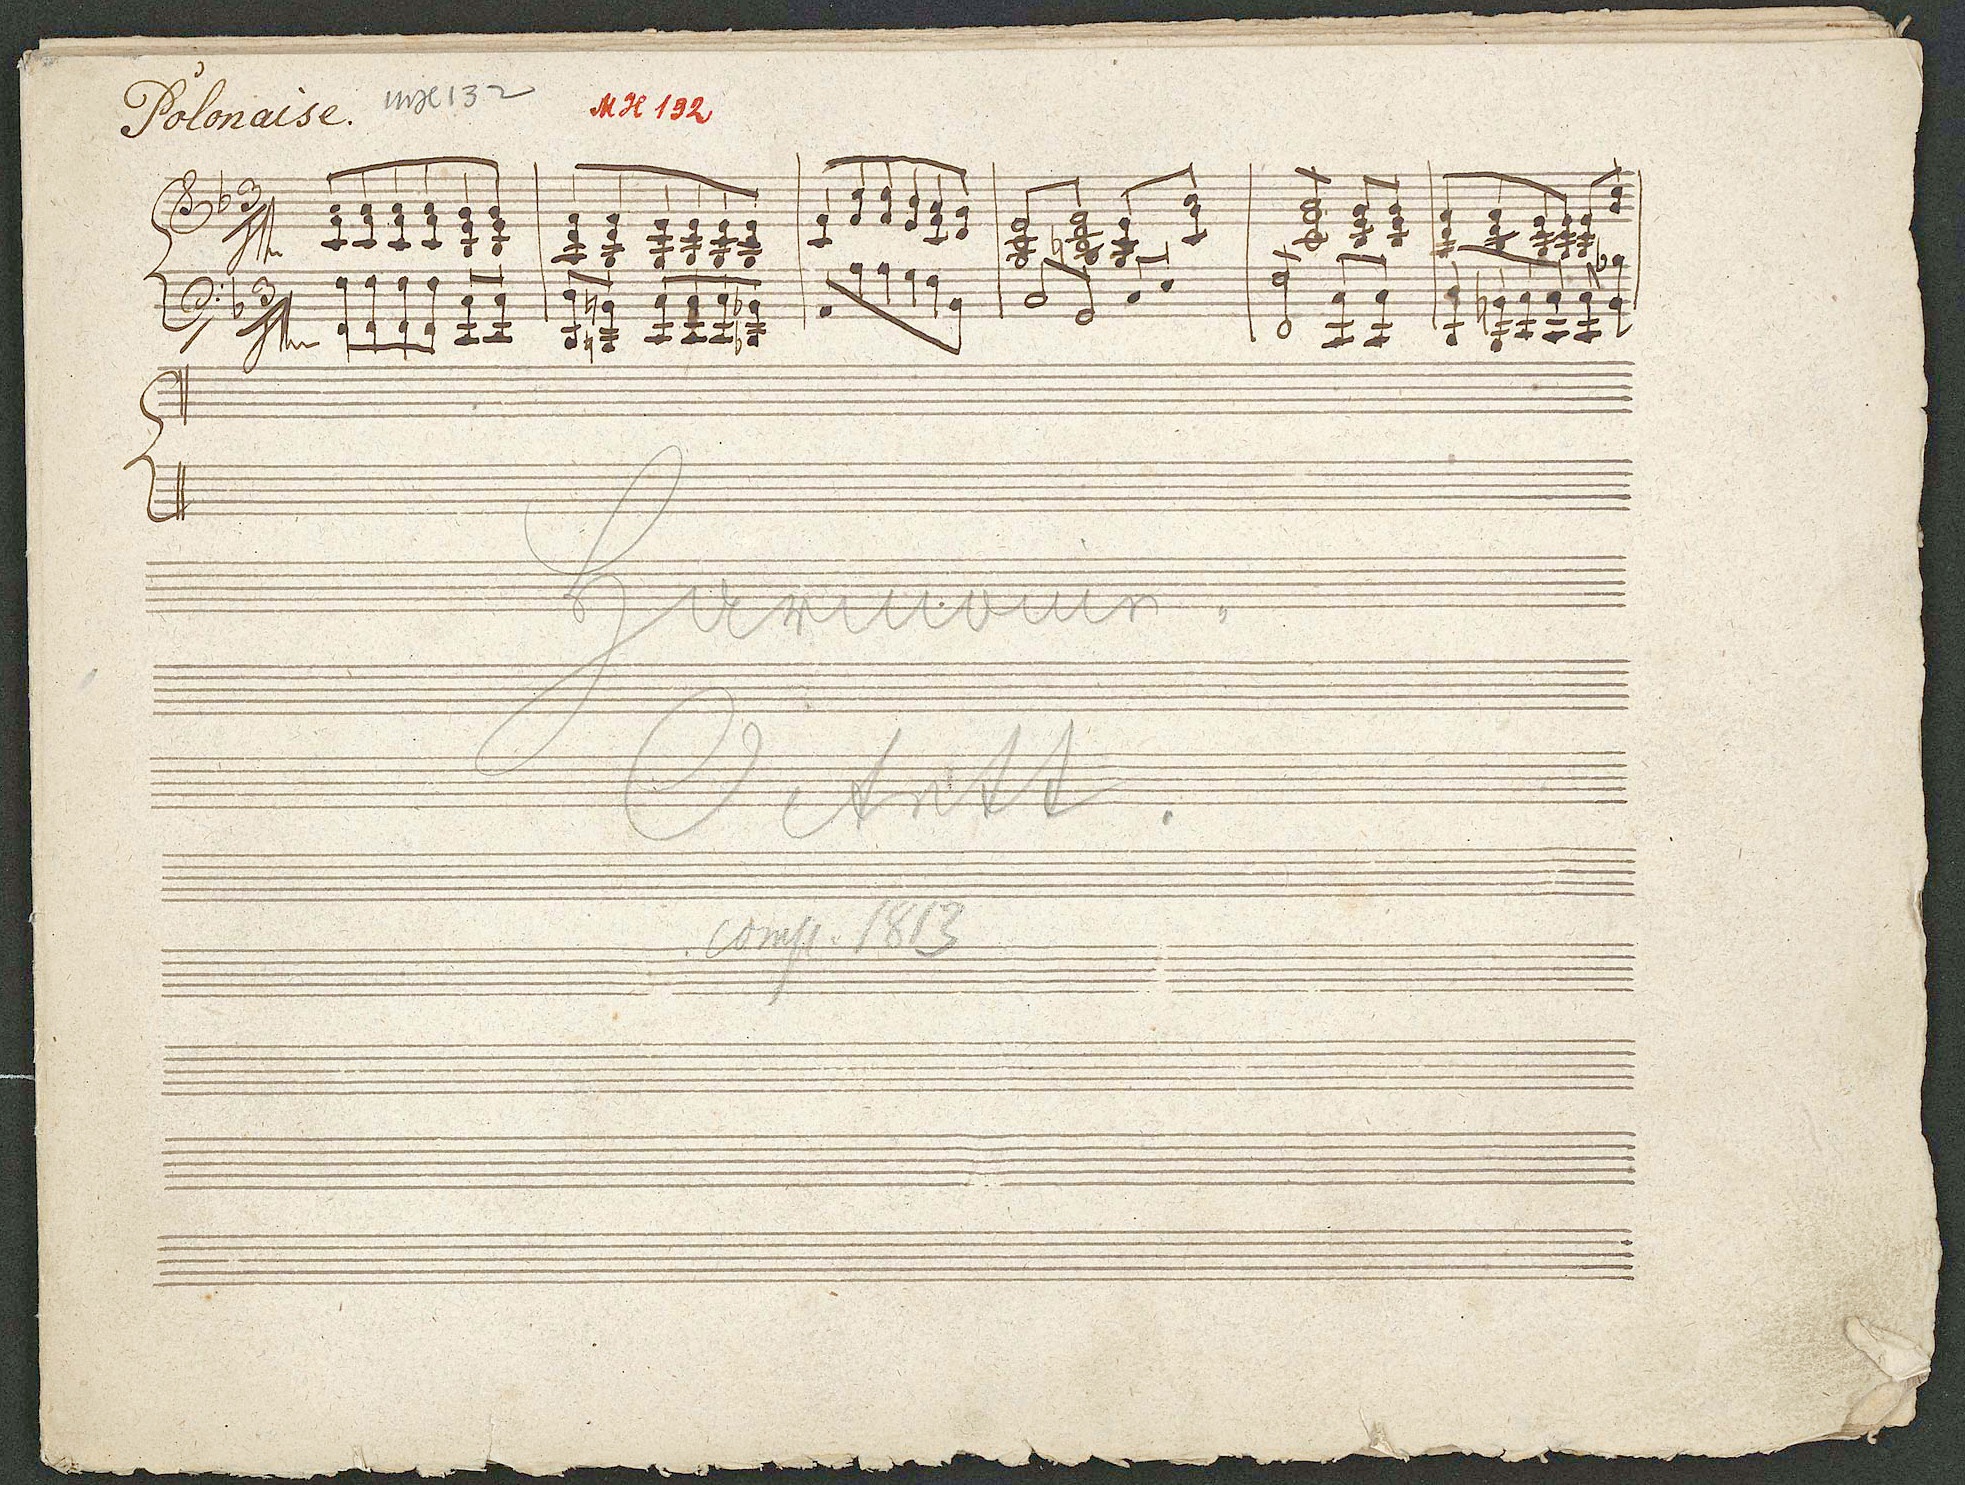 Polonaise. MH 132 MH 132
Harmonie.
Octett.
comp. 1813